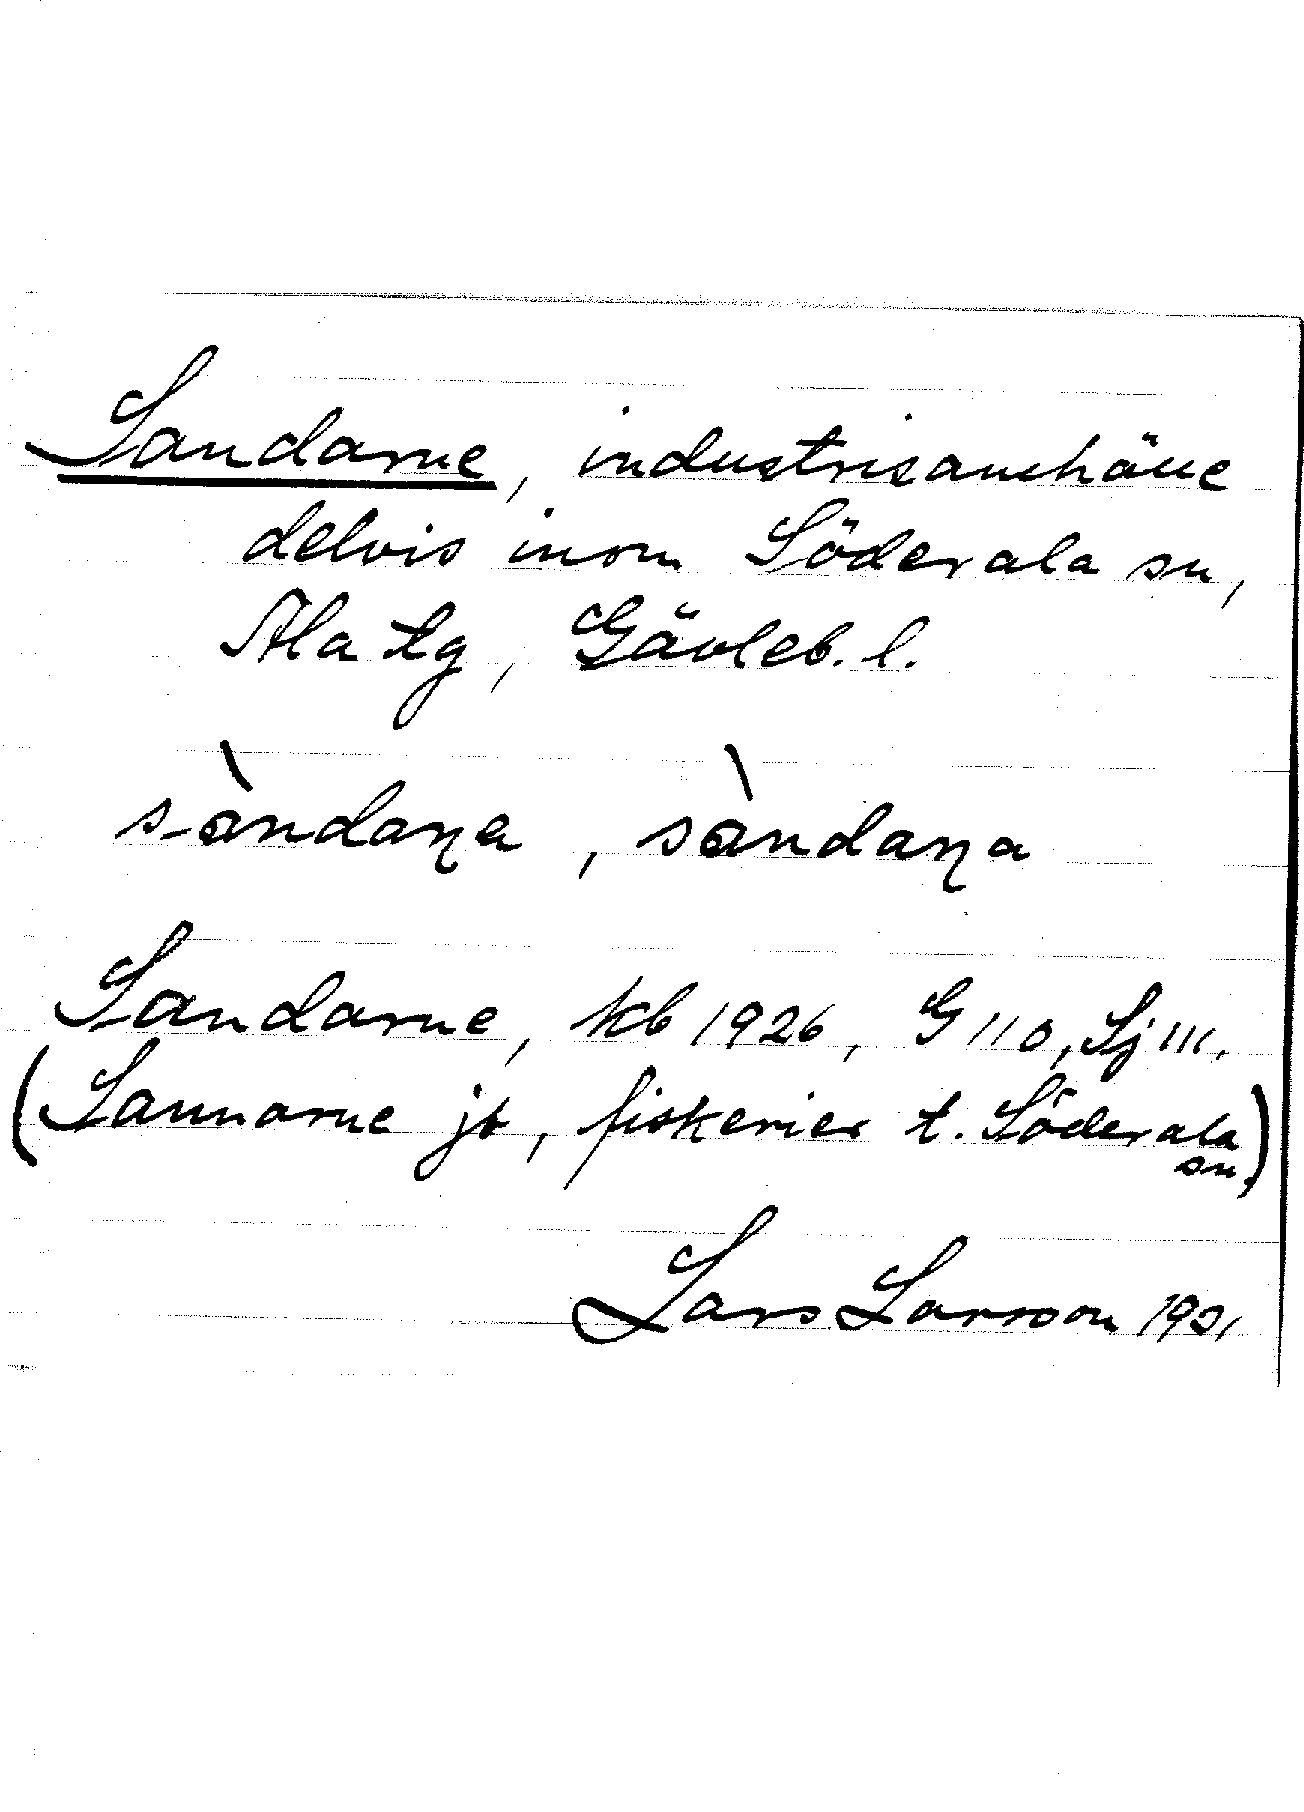 Sandarne, industrisamhälle
delvis inom Söderala sn,
Ala tg, Gävleb. l.
sàndaɳa, sàndaɳa
Sandarne, kb 1926, G 110, Sj 111.
(Sannarne jb, fiskerier t. Söderala
sn.)
Lars Larsson 1931